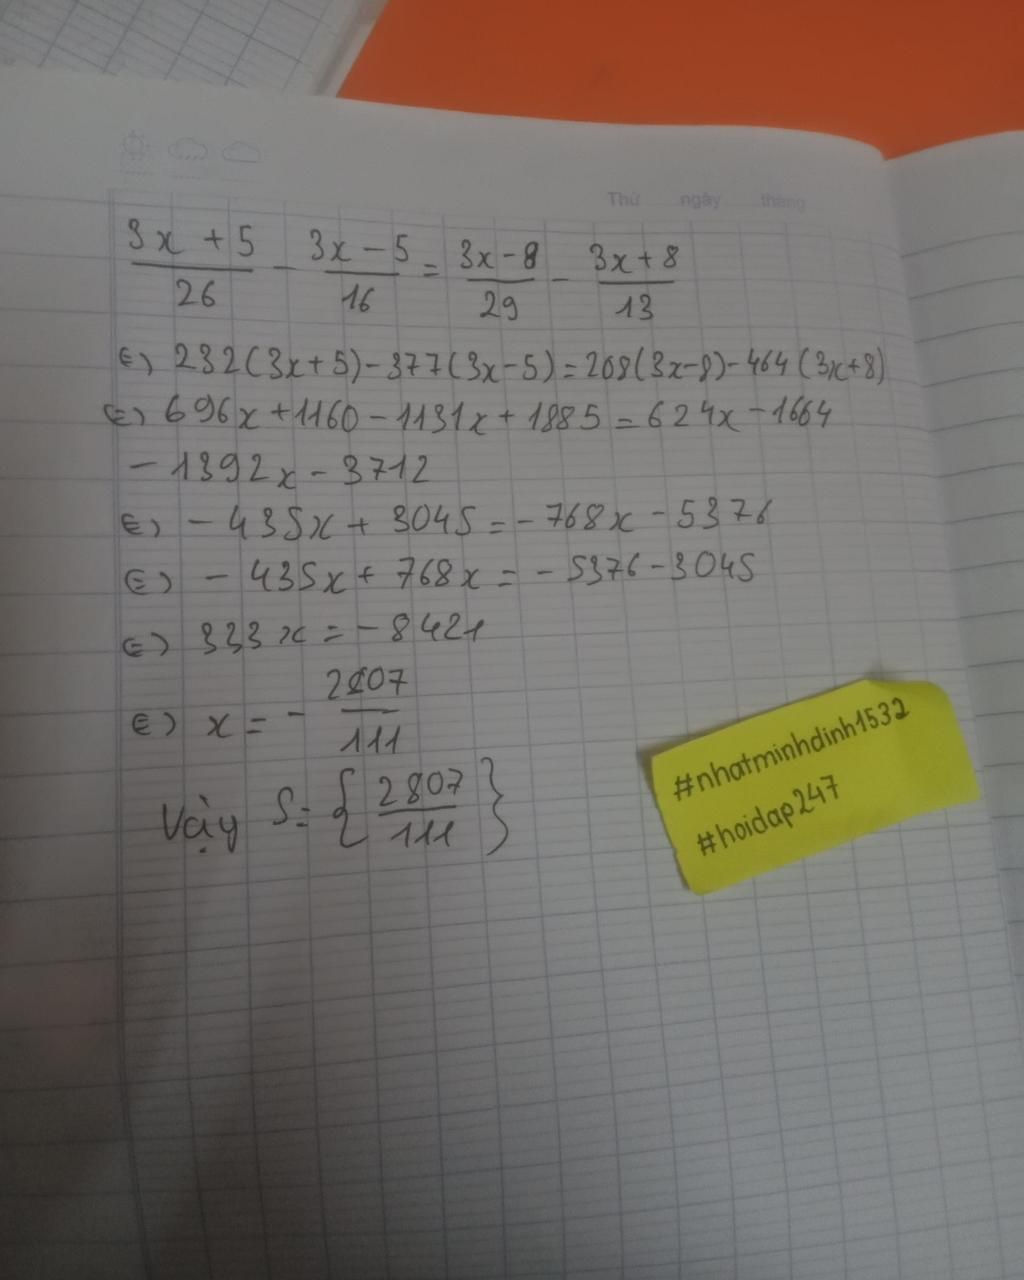 Thứ ngày tháng
3x + 5 / 26 - 3x - 5 / 16 = 3x - 8 / 29 - 3x + 8 / 13
(=) 232(3x+5)-377(3x-5)=208(3x-8)-464(3x+8)
(=) 696x+1160-1131x+1885=624x-1664
-1392x-3712
(=) -435x+3045=-768x-5376
(=) -435x+768x=-5376-3045
(=) 333x=-8421
(=) x=-2807/111
Vậy S={2807/111}
#nhatminhdinh1532
#hoidap247